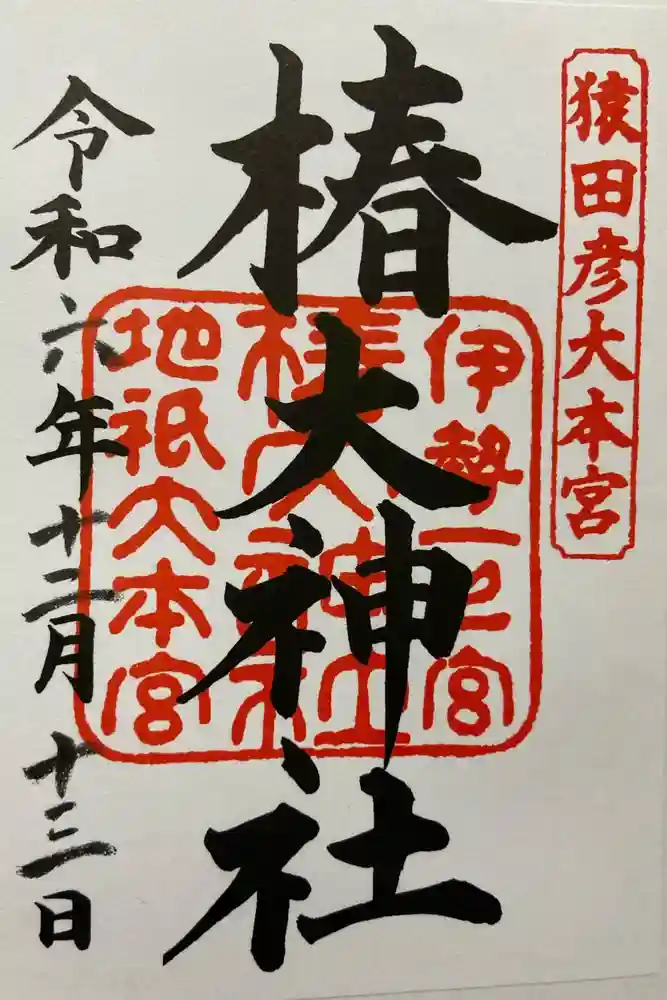 猿田彦大本宮
椿大神社
伊勢一之宮
椿大神社
地祇大本宮
令和六年十二月十三日